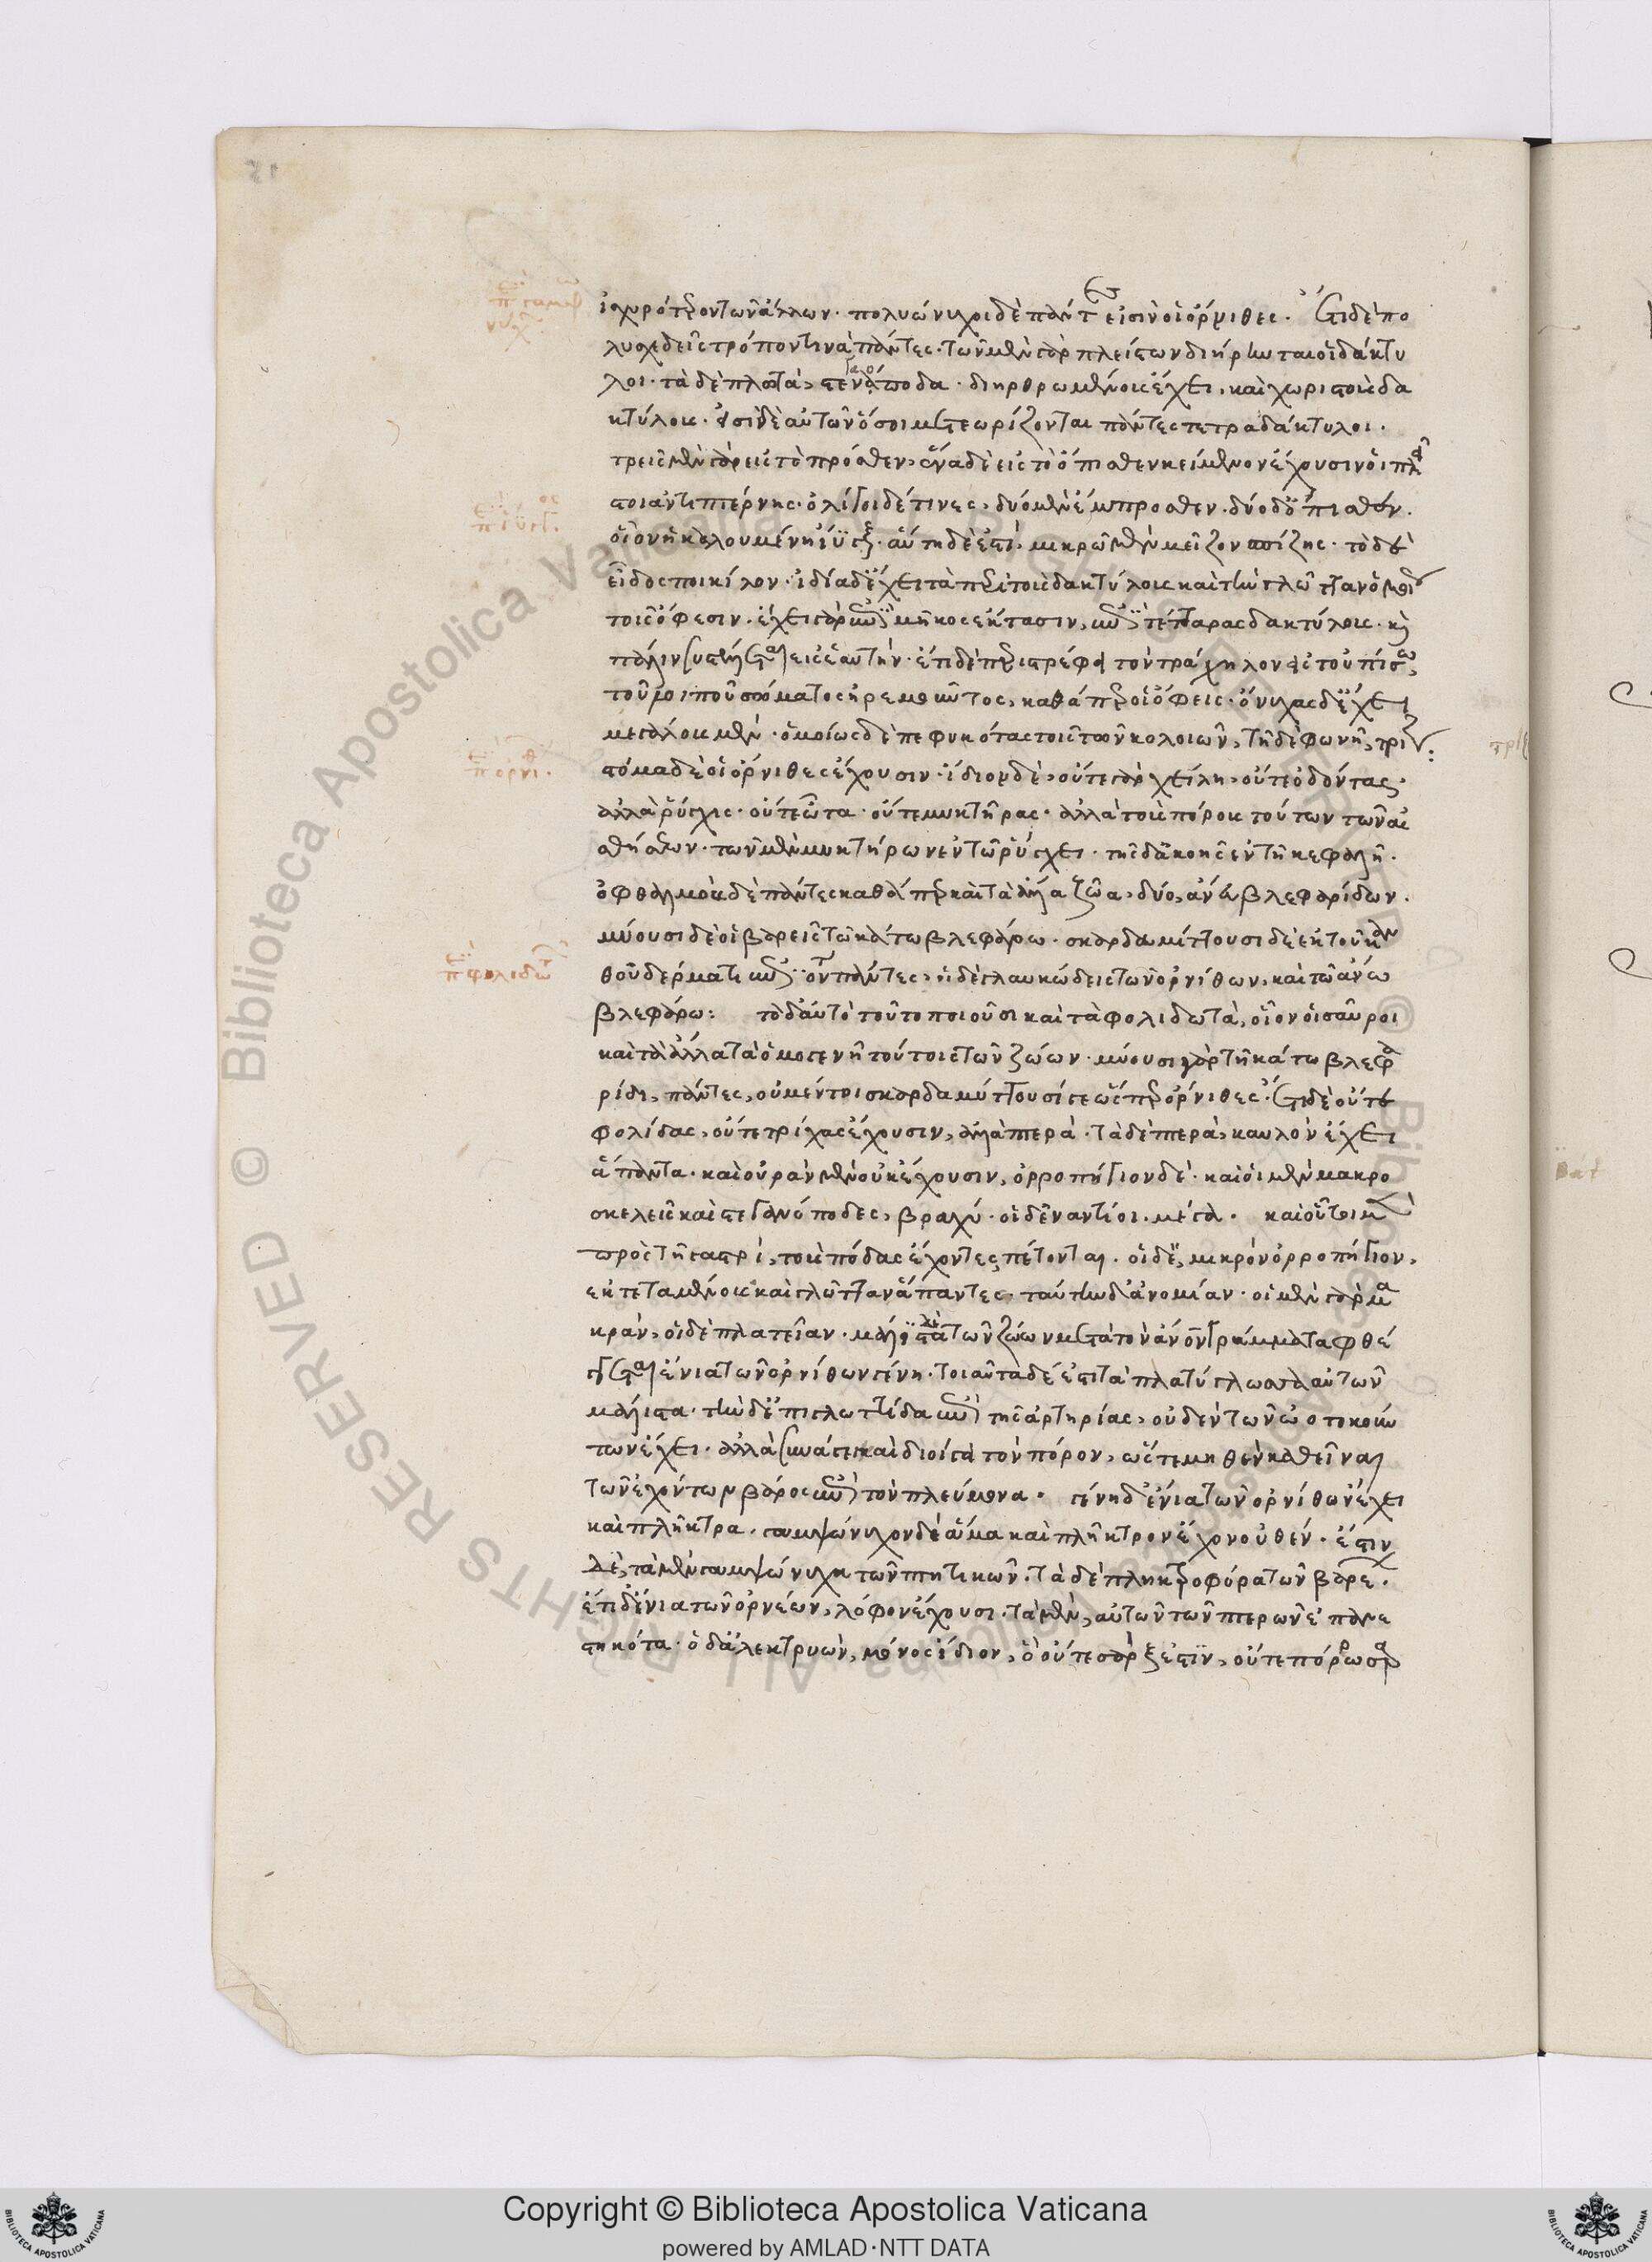 ἰσχυρότερον τῶν ἄλλων· πολυώνυχοι δὲ πάντες εἰσὶν οἱ ὄρνιθες· ἔτι δὲ πο
λυσχιδεῖς τρόπον τινὰ πάντες· τῶν μὲν γὰρ πλείστων διήρηνται οἱ δάκτυ
λοι· τὰ δὲ πλωτὰ, στεγανόποδα· διηρθρωμένους ἔχει, καὶ χωριστοὺς δα
κτύλους· εἰσὶ δὲ αὐτῶν ὅσοι μετεωρίζονται πάντες τετραδάκτυλοι·
τρεῖς μὲν γὰρ εἰς τὸ πρόσθεν, ἕνα δὲ εἰς τὸ ὄπισθεν κείμενον ἔχουσιν οἱ πλεῖ
στοι ἀντὶ πτέρνης· ὀλίγοι δέ τινες, δύο μὲν ἔμπροσθεν· δύο δ' ὄπισθεν·
οἷον ἡ καλουμένη ἴϋγξ· αὕτη δὲ ἐστὶ, μικρῶ μὲν μεῖζον σπίζης· τὸ δὲ
εἶδος ποικίλον· ἰδία δ' ἔχει τὰ περὶ τοὺς δακτύλους καὶ τὴν γλῶτταν ὁμοίαν
τοῖς ὄφεσιν· ἔχει γὰρ ἐπὶ μῆκος ἔκτασιν, ἐπὶ τέτταρας δακτύλους· καὶ
πάλιν συστέλλεται εἰς ἑαυτήν· ἔτι δὲ περιστρέφει τὸν τράχηλον εἰς τοὐπίσω,
τοῦ λοιποῦ σώματος ἠρεμοῦντος, καθάπερ οἱ ὄφεις· ὄνυχας δ' ἔχει
μεγάλους μὲν· ὁμοίως δὲ πεφυκότας τοῖς τῶν κολοιῶν, τῆ δὲ φωνῆ, τρίζει:
στόμα δὲ οἱ ὄρνιθες ἔχουσιν· ἴδιον δὲ, οὔτε γὰρ χείλη, οὔτε ὀδόντας·
ἀλλὰ ῥύγχις· οὔτε ὦτα· οὔτε μυκτῆρας· ἀλλὰ τοὺς πόρους τούτων τῶν αἰ
σθήσεων· τῶν μὲν μυκτήρων ἐν τῶ ῥύγχει· τῆς δ' ἀκοῆς ἐν τῆ κεφαλῆ·
ὀφθαλμοὺς δὲ πάντες καθάπερ καὶ τὰ ἄλλα ζῶα, δύο, ἄνευ βλεφαρίδων·
μύουσι δὲ οἱ βαρεῖς τῶ κάτω βλεφάρω· σκαρδαμύττουσι δὲ ἐκ τοῦ καν
θοῦ δέρματι ἐπιόντι πάντες, οἱ δὲ γλαυκώδεις τῶν ὀρνίθων, καὶ τῶ ἄνω
βλεφάρω: τὸ δ' αὐτὸ τοῦτο ποιοῦσι καὶ τὰ φολιδωτὰ, οἷον οἱ σαῦροι
καὶ τὰ ἄλλα τὰ ὁμογενῆ τούτοις τῶν ζώων· μύουσι γὰρ τῆ κάτω βλεφα
ρίδι, πάντες, οὐ μέντοι σκαρδαμύττουσί γε ὥσπερ ὄρνιθες· ἔτι δὲ οὔτε
φολίδας, οὔτε τρίχας ἔχουσιν, ἀλλὰ πτερά· τὰ δὲ πτερὰ, καυλὸν ἔχει
ἅπαντα· καὶ οὐρὰν μὲν οὐκ ἔχουσιν, ὀρροπύγιον δέ· καὶ οἱ μὲν μακρο
σκελεῖς καὶ στεγανόποδες, βραχύ· οἱ δ' ἐναντίοι, μέγα· καὶ οὗτοι μὲν
πρὸς τῆ γαστρὶ, τοὺς πόδας ἔχοντες πέτονται· οἱ δὲ, μικρὸν ὀρροπύγιον,
ἐκτεταμένους καὶ γλῶτταν ἅπαντες, ταύτην δ' ἀνομίαν· οἱ μὲν γὰρ μα
κρὰν, οἱ δὲ πλατεῖαν· μάλιστα τῶν ζώων μετὰ τὸν ἄνον γράμματα φθέ
γγεται ἔνια τῶν ὀρνίθων γένη· τοιαῦτα δέ ἐστι τὰ πλατύγλωσσα αὐτῶν
μάλιστα· τὴν δ' ἐπιγλωττίδα ἐπὶ τῆς ἀρτηρίας, οὐδὲν τῶν ὠοτοκούν
των ἔχει· ἀλλὰ συνάγει καὶ διοίγει τὸν πόρον, ὥστε μηθὲν καθεῖναι
τῶν ἐχόντων βάρος ἐπὶ τὸν πλεύμονα· γένη δ' ἔνια τῶν ὀρνίθων ἔχει
καὶ πλῆκτρα· γαμψώνυχον δὲ ἅμα καὶ πλῆκτρον ἔχον οὐθέν· ἔστιν
δὲ, τὰ μὲν γαμψώνυχα τῶν πτητικῶν· τὰ δὲ πληκτροφόρα τῶν βαρέων·
ἔτι δ' ἔνια τῶν ὀρνέων, λόφον ἔχουσι· τὰ μὲν, αὐτῶν τῶν πτερῶν ἐπανε
στηκότα· ὁ δ' ἀλεκτρυὼν, μόνος ἴδιον, ὃ οὔτε σάρξ ἐστὶν, οὔτε πόρρω σαρ
Copyright © Biblioteca Apostolica Vaticana
powered by AMLAD·NTT DATA